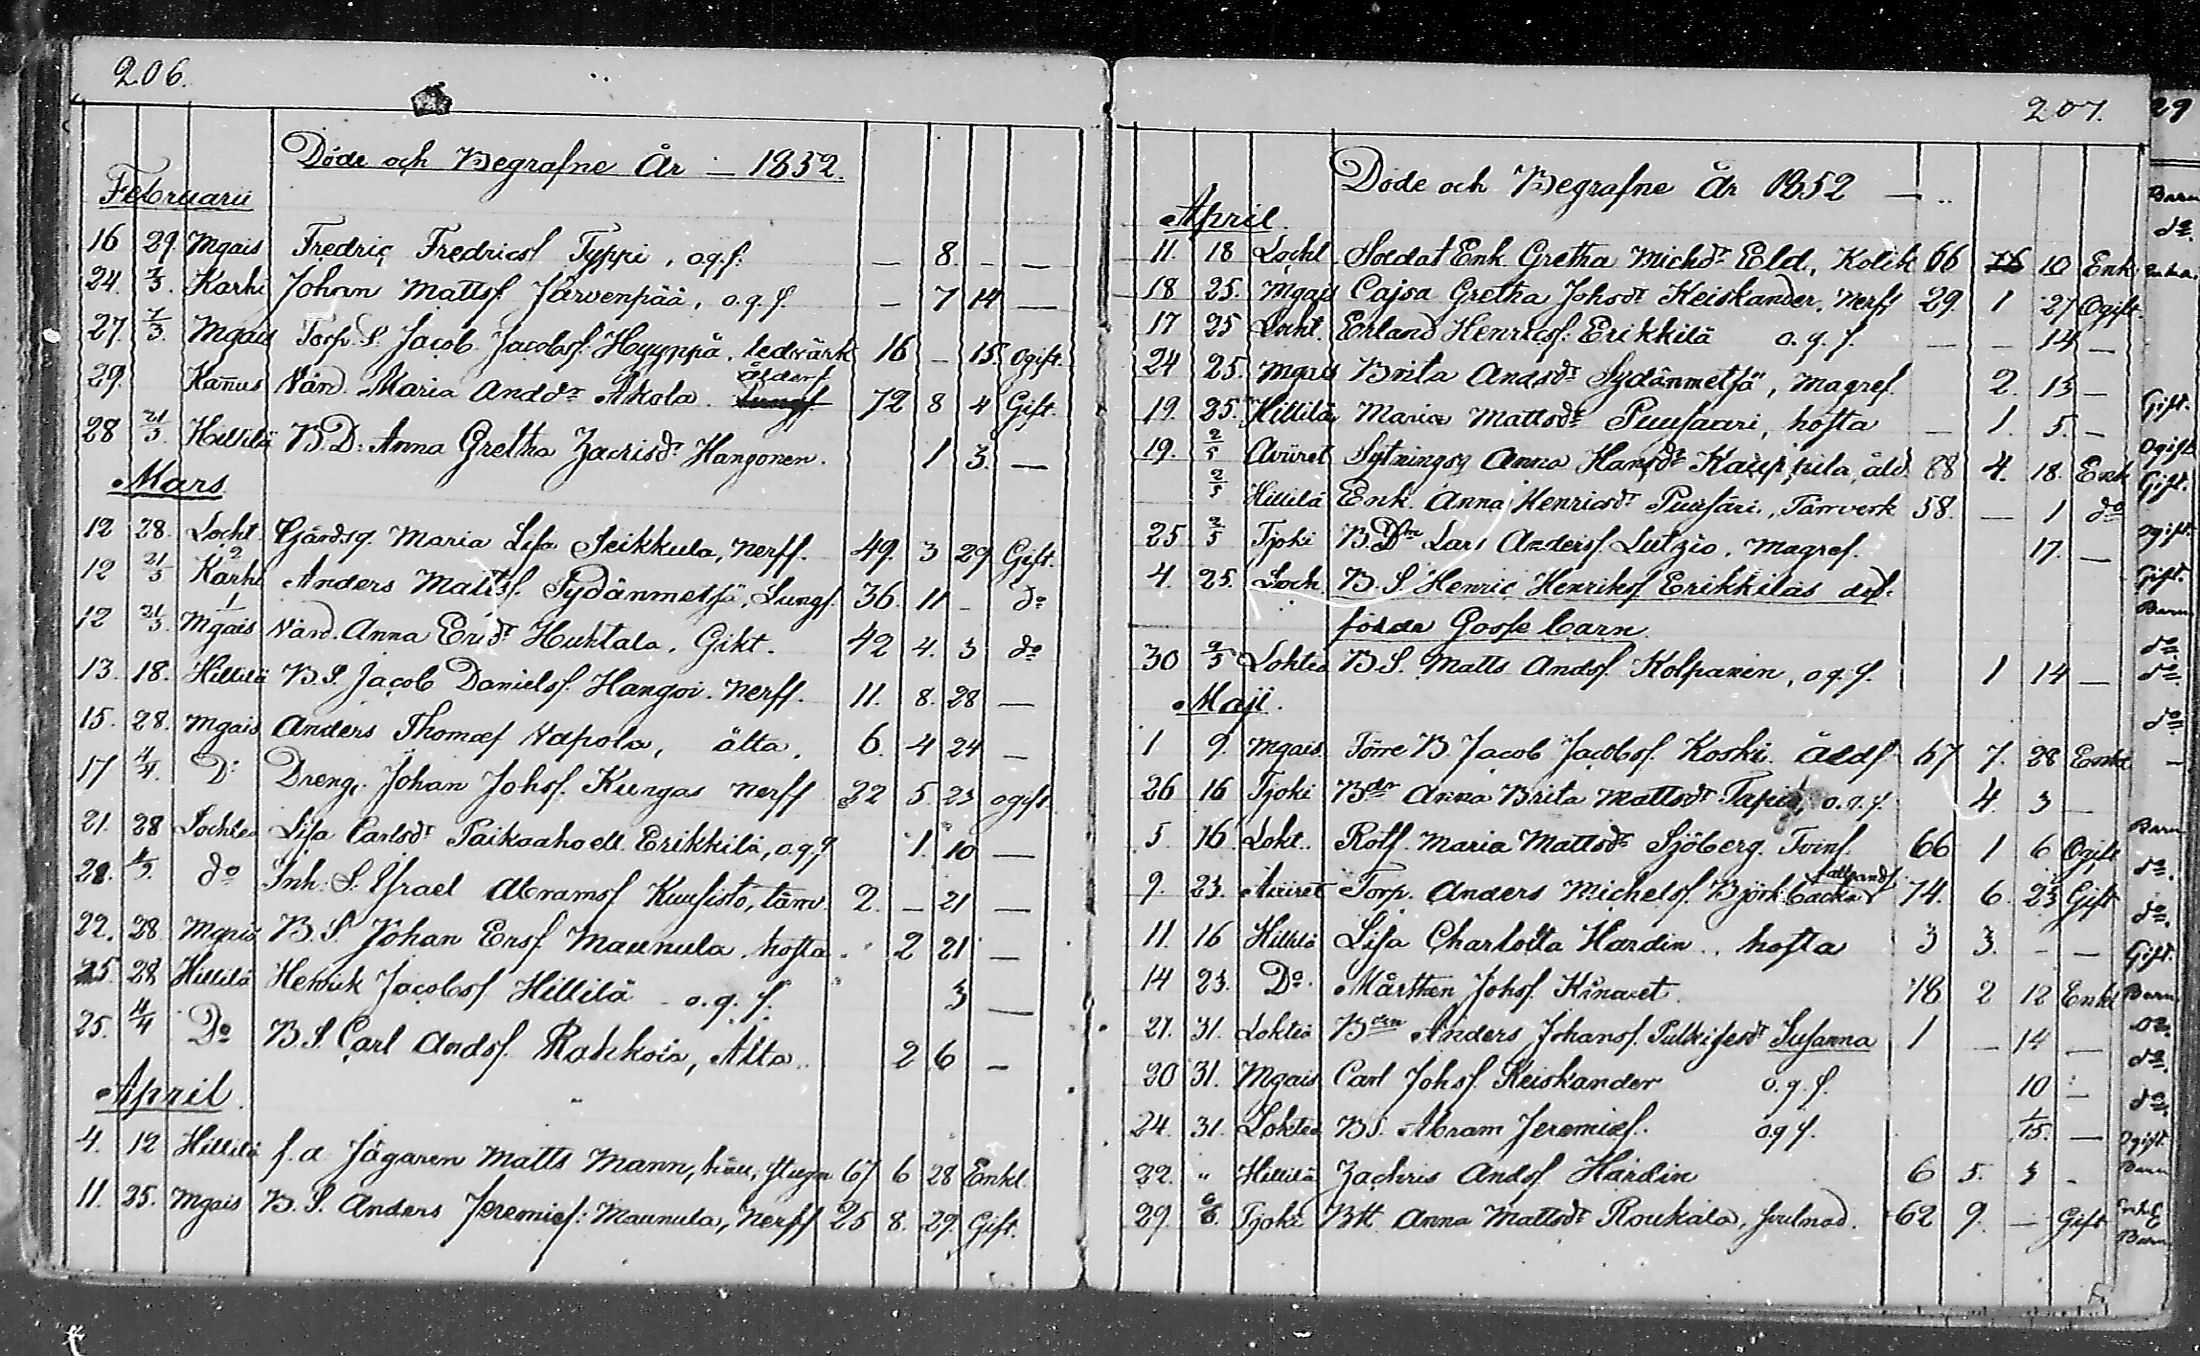 206.
Döde och Begrafne År – 1852.
Februarii
16 29. Mgais Fredric Fredricsf Typpi, o.g.f. — 8. — —
24. 7/3. Karhi Johan Mattsf. Järvenpää, o.g.f. — 7 14 —
27. 7/3. Mgais Torp. S. Jacob Jacobsf. Hyyppä, ledvärk 16 — 15. Ogift.
29. Kañus Värd. Maria Andsdr Akola. Åldersf 72 8 4 Gift.
28 21/3 Hillilä B.D. Anna Gretha Zacrisdr Hangonen. 1 3. —
Mars
12 28. Locht. Gårdsq. Maria Lisa Seikkula, Nerff. 49. 3 29 Gift.
12 21/3 Karhi 2 Anders Mattsf. Sydänmetsä, Lungf. 36. 11 - do
12 21/3. Mgais 1 Värd. Anna Ericdr Huhtala. Gikt. 42 4. 3 do
13. 18. Hillilä B.S. Jacob Danielsf. Hangoi. Nerff. 11. 8. 28 —
15. 28. Mgais Anders Thomæf Vapola, älta. 6. 4 24 —
17 4/4. Do Dreng. Johan Johsf. Kungas Nerff 22 5. 23 ogift
21. 28 Lochteå Lisa Carlsdr Paikaaho ell. Erikkilä, o.g.f 1. 10 —
28. do Inh. S. Israel Abramsf Kuusisto, tärnv. 2. — 21 —
22. 28 Mgais B.S. Johan Ersf Maunula, hosta. 2 21 —
25 28 Hillilä Henrik Jacobsf Hillilä o.g.f. 3 —
25. 4/4 Do B.S. Carl Andsf. Rahkoia, Älta.. 2 6 —
April.
4. 12 Hillilä f.d. Jägaren Matts Mann, 67 6 28 Enkl.
11. 25. Mgais B.S. Anders Jeremief: Maunula, Nerff 25 8. 29. Gift.
207.
Döde och Begrafne År 1852 —
April.
11. 18 Locht. Soldat Enk. Gretha Michdr Eld, Kolik 66 10 Enk
18 25. Mgais Cajsa Gretha Johsdr Keiskander, Nerff 29. 1 27 Ogift.
17 25 Locht. Erland Henricsf. Erikkilä o.g.f. — — 14 —
24 25. Mgais Brita Andsdr Sydänmetsä, Magref. 2. 13 —
19. 25. Hillilä Maria Mattsdr Puusaari, hosta — 1. 5. —
19. 2/5 Avüret Sytningsq Anna Hansdr Kauppila, åld. 88 4. 18. Enk
2/5 Hillilä Enk. Anna Henricsdr Puusari, Tärnverk 58. — 1 do
25 2/5 Tjoki B.Dtr Lars Andersf. Lutzio. Magref. 17. —
4. 25. Loch. B.S. Henric Henriksf Erikkiläs död-
födda Gosse barn
30 9/5 Lohteå B.S. Matts Andsf. Kolpanen, o.g.f. 1 14 —
Maji.
1 9. Mgais. Förre B. Jacob Jacobsf. Koski. Åldf. 67 7. 28 Enkl
26 16 Tjoki Bdr Anna Brita Mattsdr Tapio, o.g.f. 4. 3 —
5. 16 Lokt. Rotf. Maria Mattsdr Sjöberg. Tvinf. 66 1 6 Ogift
9. 23. Aüiret Torp. Anders Michelsf. Björkbacka 74. 6. 23 Gift
11. 16 Hillilä Lisa Charlotta Hardin.. hosta 3 3. - —
14 23. Do. Mårthen Johsf. Känavet 78 2 12 Enkl
21. 31. Lokteå Bdrn Anders Johansf. Susanna 1 — 14 —
20 31. Mgais Carl Johsf. Keiskander o.g.f. 10 —
24. 31. Lokteå BS. Abram Jeremief. o.g.f. 1/15. —
22. " Hillilä Zachris Andsf Hardin 6 5. 3 -
29. 6/6. Tjoki BH. Anna Mattsdr Roukala, svulnad. 62 9. — Gift
29
Barn
do.
Gift.
Ogift
Gift.
Ogift.
Gift.
Barn
do
do.
do
Barn
do.
do.
Gift.
Barn
do.
do.
do.
Ogift
Barn
Enkl
Barn